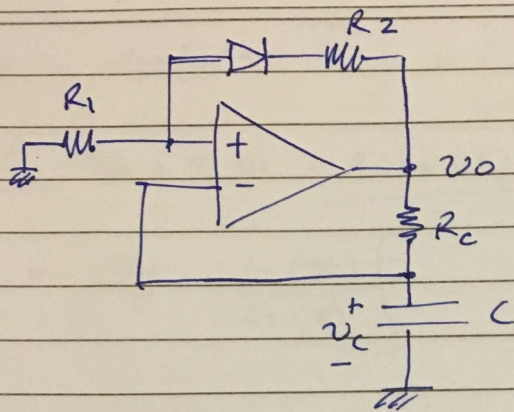 R2
R1
+
-
vo
Rc
+
vc
-
C